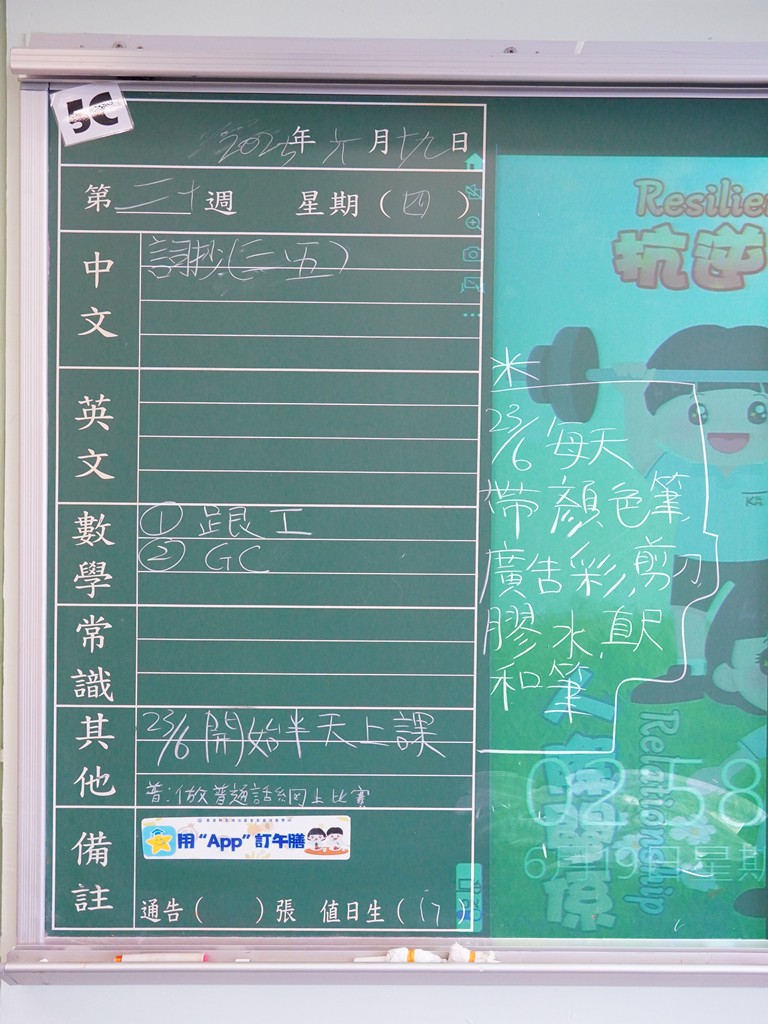 5C
2025年六月十九日
第二十週 星期(四)
中文
詞抄(三-五)
英文
數學
① 跟工
② GC
常識
其他
23/6 開始半天上課
普:做普通話網上比賽
備註
用“App”訂午膳
通告( )張 值日生(17)
*
23/6 每天
帶顏色筆,
廣告彩,剪刀
膠水,直尺
和筆
Resilien
抗逆
Relationship
02:58
6月19日 星期